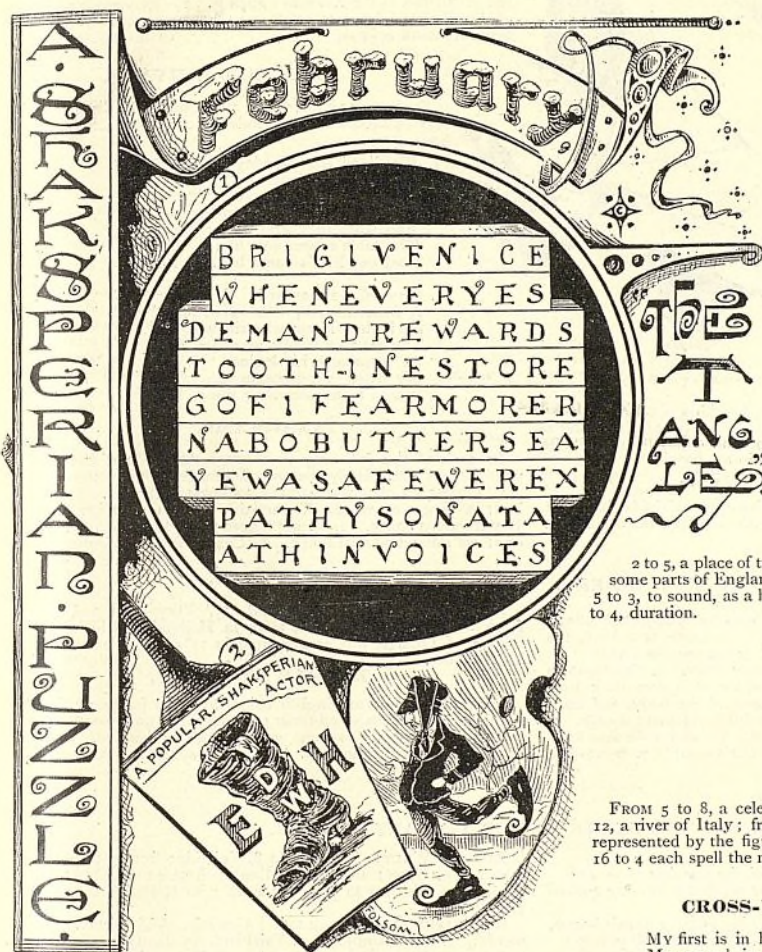 A·SHAKSPERIAN·PUZZLE.
February
1
BRIGIVENICE
WHENEVERYES
DEMANDREWARDS
TOOTH-INESTORE
GOFIFEARMORER
NABOBUTTERSEA
YEWASAFEWEREX
PATHYSONATA
ATHINVOICES
"THE
T
ANG
LE"
2 to 5, a place of t
some parts of Englan
5 to 3, to sound, as a h
to 4, duration.
2
A·POPULAR·SHAKSPERIAN
ACTOR.
E D W H
OLSOM.
FROM 5 to 8, a cele
12, a river of Italy; fr
represented by the fig
16 to 4 each spell the n
CROSS-
My first is in